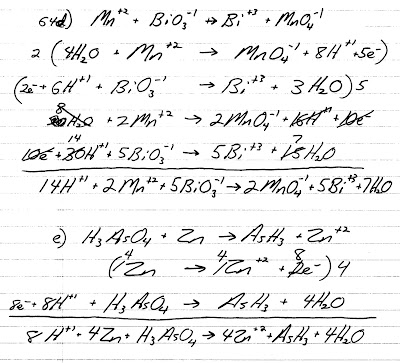 64d) Mn⁺² + BiO₃⁻¹ → Bi⁺³ + MnO₄⁻¹
2 (4H₂O + Mn⁺² → MnO₄⁻¹ + 8H⁺¹ + 5e⁻)
(2e⁻ + 6H⁺¹ + BiO₃⁻¹ → Bi⁺³ + 3H₂O) 5
8H₂O + 2Mn⁺² → 2MnO₄⁻¹ + 16H⁺¹ + 10e⁻
10e⁻ + 14 30H⁺¹ + 5BiO₃⁻¹ → 5Bi⁺³ + 7 15H₂O
14H⁺¹ + 2Mn⁺² + 5BiO₃⁻¹ → 2MnO₄⁻¹ + 5Bi⁺³ + 7H₂O
e) H₃AsO₄ + Zn → AsH₃ + Zn⁺²
(4 1Zn → 4 1Zn⁺² + 8 2e⁻) 4
8e⁻ + 8H⁺¹ + H₃AsO₄ → AsH₃ + 4H₂O
8H⁺¹ + 4Zn + H₃AsO₄ → 4Zn⁺² + AsH₃ + 4H₂O